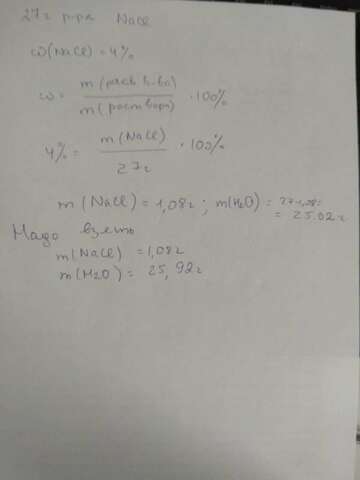 27г р-ра NaCl
ω(NaCl) = 4%
ω = m(раств. в-ва) / m(раствора) · 100%
4% = m(NaCl) / 27г · 100%
m(NaCl) = 1,08г ; m(H2O) = 27-1,08=
= 25.92г
Надо взять
m(NaCl) = 1,08г
m(H2O) = 25,92г